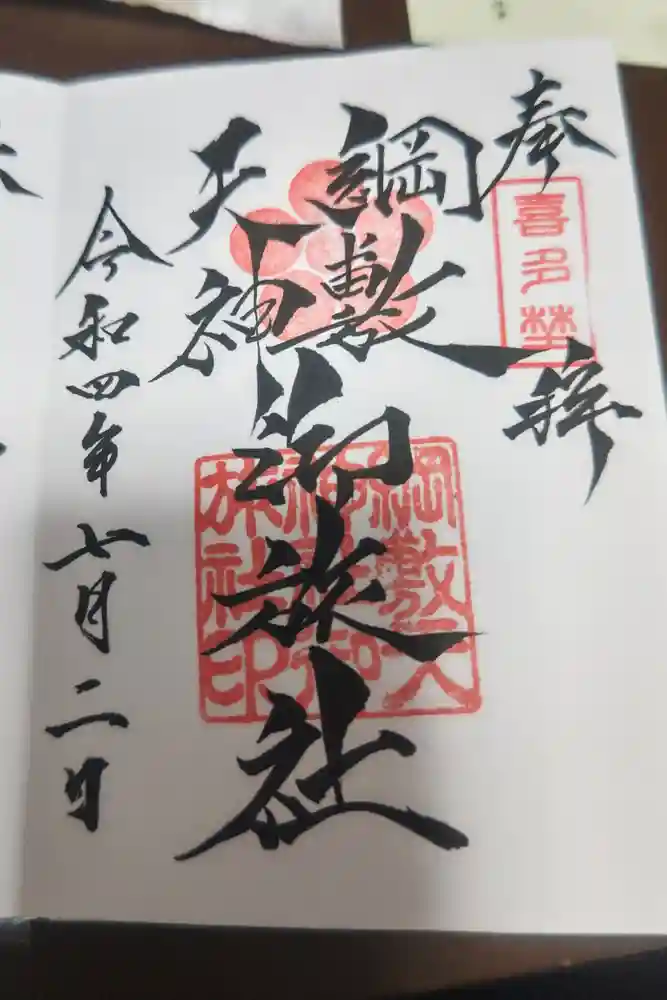 奉拝
喜多埜
綱敷
天神
御旅社
綱敷天
神社御
旅社印
令和四年七月二日